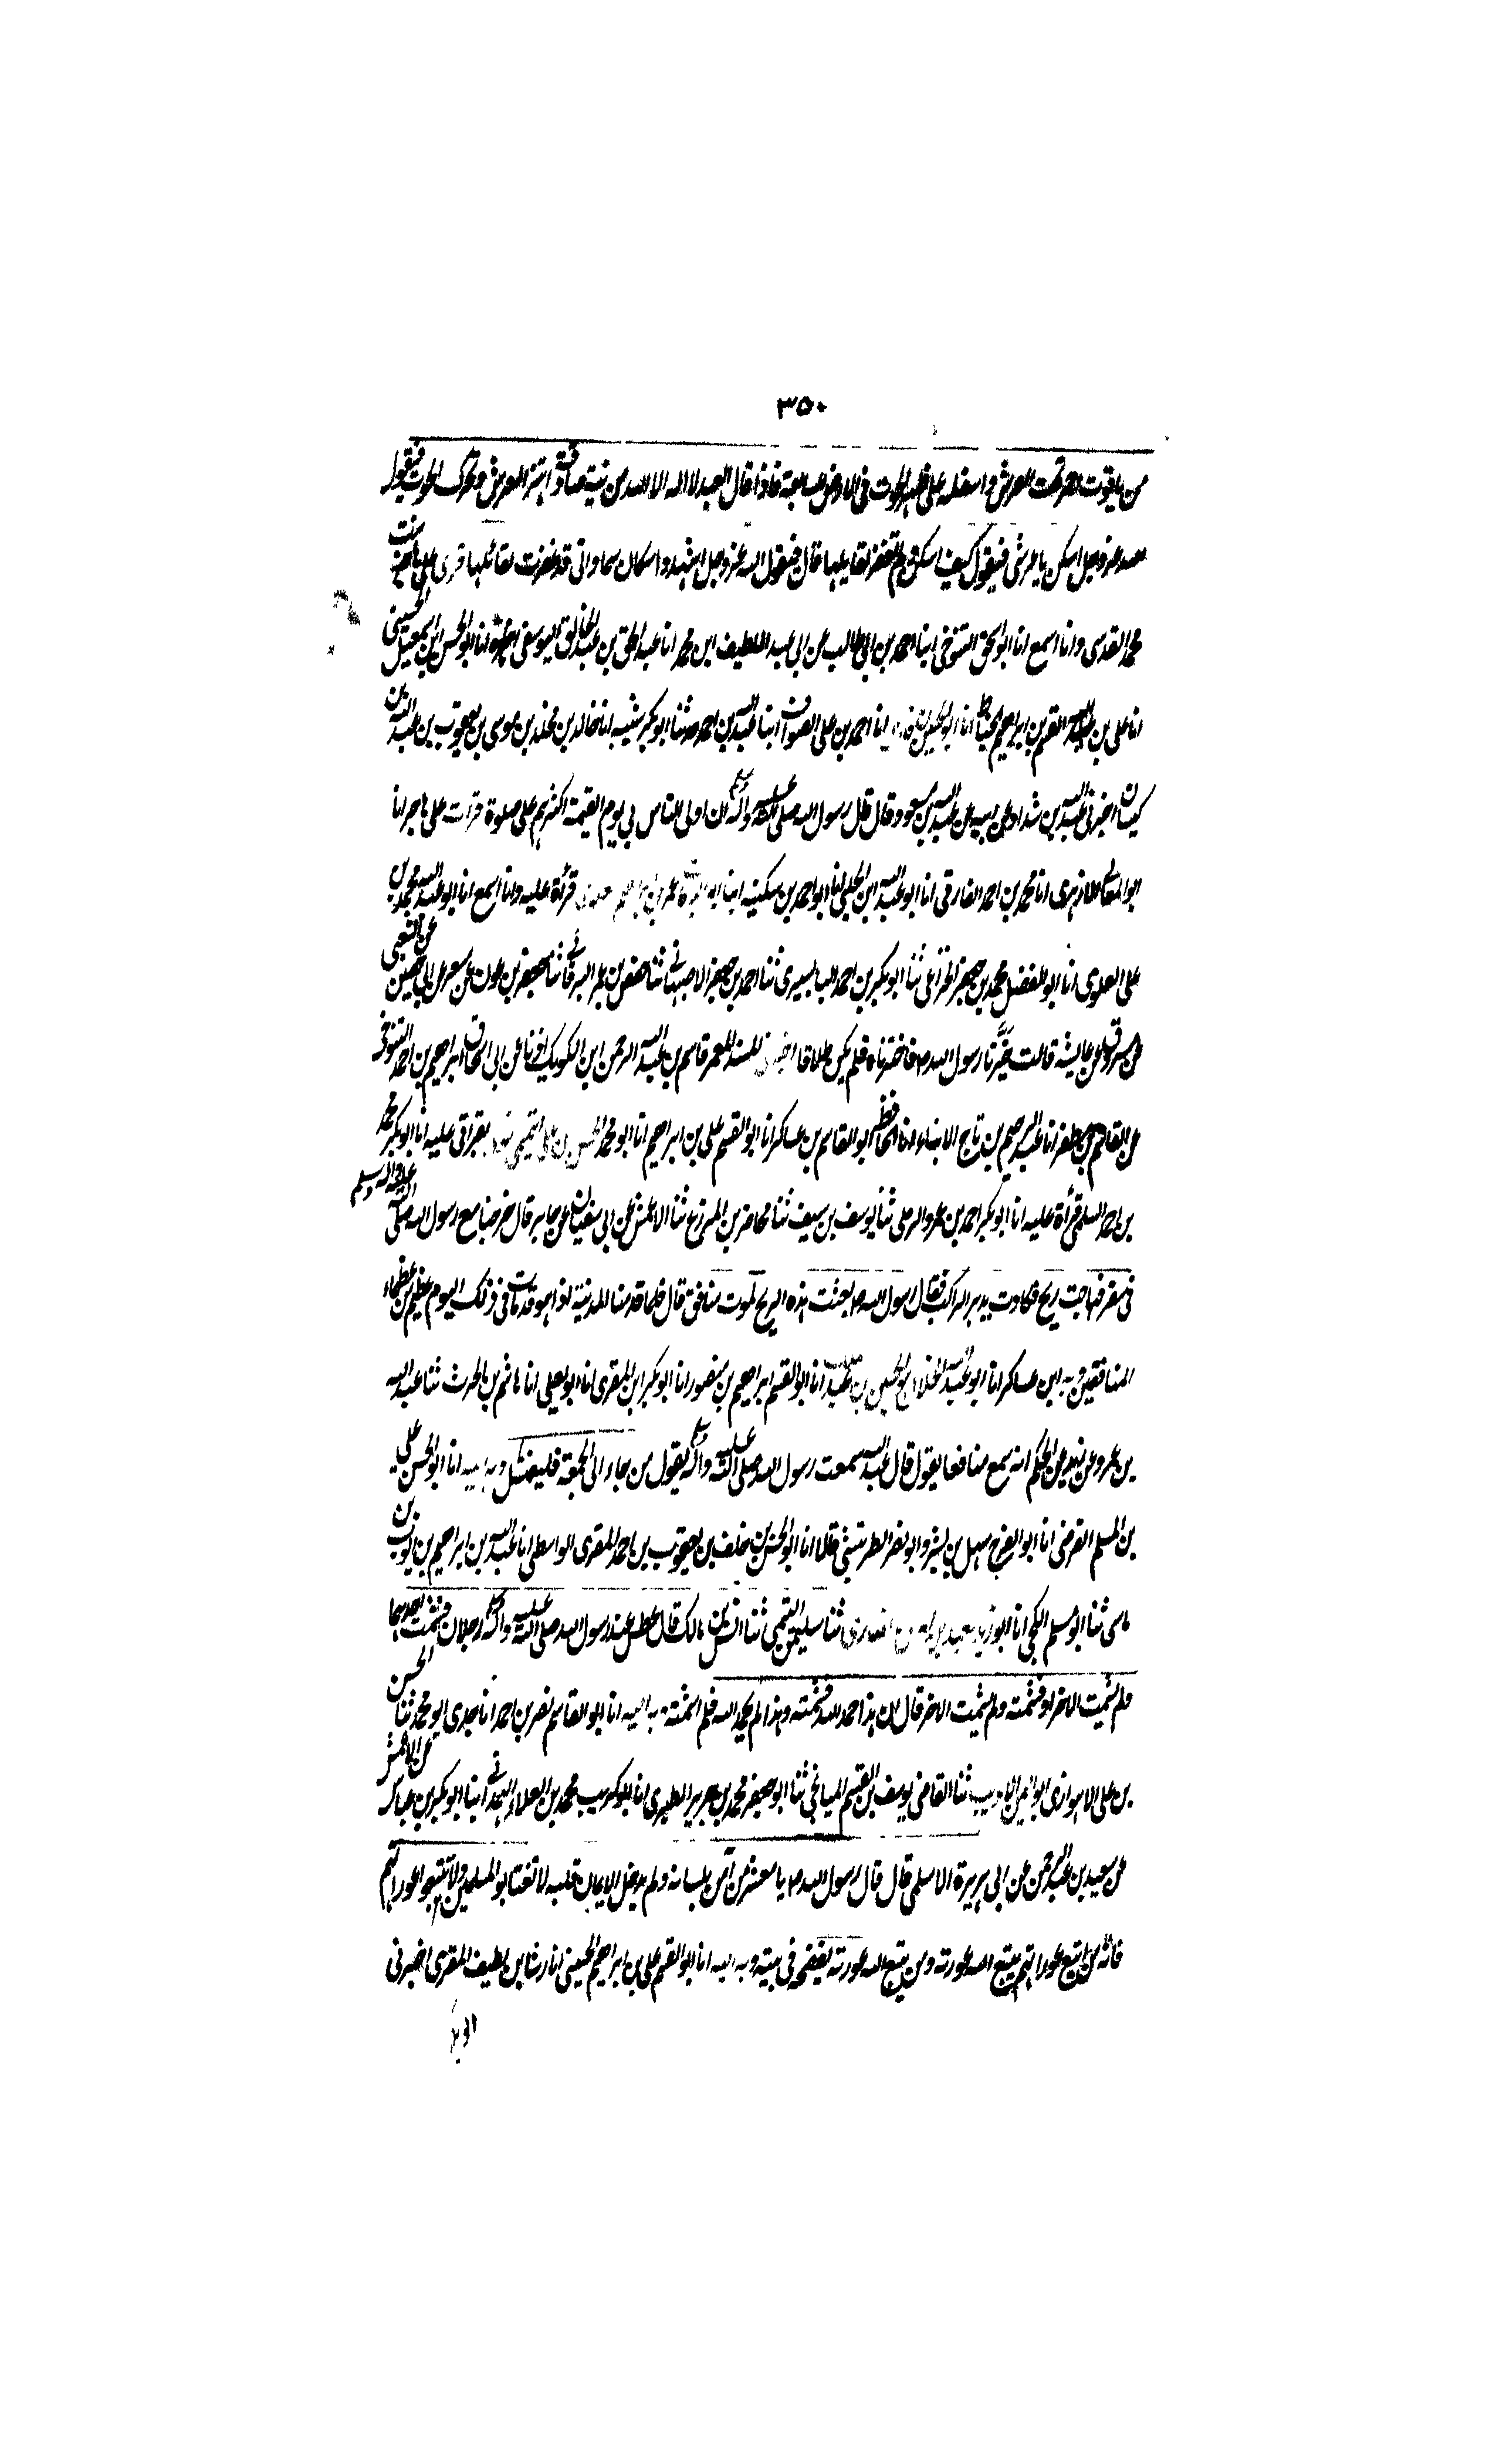 ٣٥٠
من ياقوت احمر تحت العرش واسفله على ظهر الحوت فى الارض السابعة فاذا قال العبد لا اله الا الله من نية صادقة اهتز العرش وتحرك الحوت فيقول
الله عز وجل اسكن يا عرشى فيقول كيف اسكن ولم تغفر لقايلها قال فيقول الله عز وجل اشهدوا سكان سماواتى قد غفرت لقائلها قرى على خديجة بنت
محمد المقدسى وانا اسمع انا ابو اسحق التنوخى انبا احمد بن ابى طالب عن ابى عبد اللطيف ابن محمد انا عبد الحق بن عبد الخالق اليوسفى انا ابو الحسن بن اسمعيل الحسينى
انا على بن القسم بن ابراهيم الخياط انا انا احمد بن على الصوان انبا عبد الله بن احمد ثنا ابو بكر شيبه انا خالد بن مخلد بن موسى بن يعقوب بن عبد الله بن
كيسان اخبرنى عبد الله بن شداد عن ابيه عن عبد الله بن مسعود قال قال رسول الله صلى الله عليه واله وسلم ان اولى الناس بى يوم القيمة اكثرهم على صلوة قرات على هاجر انا
ابو المعالى الازهرى انا محمد بن احمد الفارقى انا ابو عبد الله ابن الحلبى انا ابو احمد بن سكينه انبا عمر بن ابراهيم قرأة عليه وانا اسمع انا ابو عبد الله محمد بن
على العلوى انا ابو الفضل محمد بن جعفر الخزاعى ثنا ابو بكر بن احمد البابسيرى ثنا احمد بن جعفر الاصبهانى ثنا حفص بن عمر البرقانى ثنا جعفر بن عون عن مسعر عن ابى حصين عن الشعبى
عن مسروق عن عايشه قالت خيّرنا رسول الله ص فاخترناه فلم يكن طلاقا المسند المعمر قاسم بن عبد الرحمن ابن الكويك اذنا عن ابى اسحاق ابراهيم بن احمد التنوخى
عن القاسم بن مظفر انا عبد الرحيم بن تاج الامناء انا الحافظ ابو القاسم بن عساكر انا ابو القسم على بن ابراهيم انا ابو محمد الحسن بن على التميمى بقراتى عليه انا ابو بكر محمد
بن احمد السلمى قرأة عليه انا ابو بكر احمد بن عمرو الرملى ثنا يوسف بن سيف ثنا محاضر بن المورّع ثنا الاعمش عن ابى سفيان عن جابر قال خرجنا مع رسول الله صلى الله عليه واله وسلم
فى سفر فهاجت ريح فقال رسول الله ص بعثت هذه الريح لموت منافق قال فلما قدمنا المدينة اذا هو قد مات فى ذلك اليوم عظيم من عظماء
المنافقين وبه ابن عساكر انا ابو عبد الله الخلال الحسين بن عبد الملك انا ابو القسم ابراهيم بن منصور انا ابو بكر ابن المقرى انا ابو يعلى انا هاشم بن الحرث ثنا عبد الله
بن عمرو عن زيد عن الحكم انه سمع نافعا يقول قال عبد الله سمعت رسول الله صلى الله عليه واله وسلم يقول من جاء الى الجمعة فليغتسل وبه اليه انا ابو الحسن على
بن المسلم الفرضى انا ابو الفرج سهل بن بشر وابو نصر الطرثيثى قالا انا ابو الحسن بن خلف بن يعقوب بن احمد المقرى الواسطى انا عبد الله بن ابراهيم بن ايوب بن
ماسى ثنا ابو مسلم الكجى انا ابو زيد سعيد بن الانصارى ثنا سليمن التيمى ثنا انس بن مالك قال عطس عند رسول الله صلى الله عليه واله وسلم رجلان فشمت احدهما
ولم يشمت الاخر او فشمته ولم يشمت الاخر قال ان هذا حمد الله فشمته وهذا لم يحمد الله فلم اشمته وبه اليه انا ابو القاسم نصر بن احمد انا جدى ابو محمد ثنا الحسن
بن على الاهوازى ابو الحسن الاديب ثنا القاضى يوسف بن القسم الميانجى ثنا ابو جعفر محمد بن جرير الطبرى انا ابو كريب محمد بن العلاء الهمدانى انبا ابو بكر بن عياش عن الاعمش
عن سعيد بن عبد الرحمن عن ابى بريزة الاسلمى قال قال رسول الله ص يا معشر من آمن بلسانه ولم يدخل الايمان قلبه لا تغتابوا المسلمين ولا تتبعوا عوراتهم
فانه من اتبع عوراتهم يتبع الله عورته ومن يتبع الله عورته يفضحه فى بيته وبه اليه انا ابو القسم على بن ابراهيم الحسينى انا رشا بن لطيف المقرى اخبرنى
ابو بكر